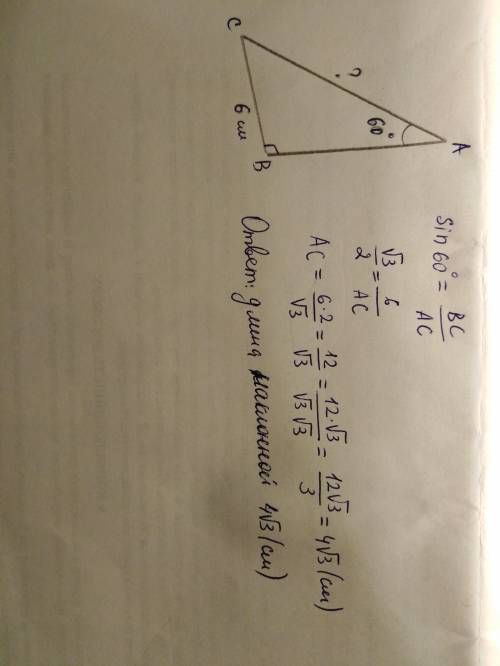 C
?
60°
A
6 см
B
sin 60° = BC/AC
√3/2 = 6/AC
AC = 6·2/√3 = 12/√3 = 12·√3/√3 √3 = 12√3/3 = 4√3 (см)
Ответ: длина наклонной 4√3 (см)